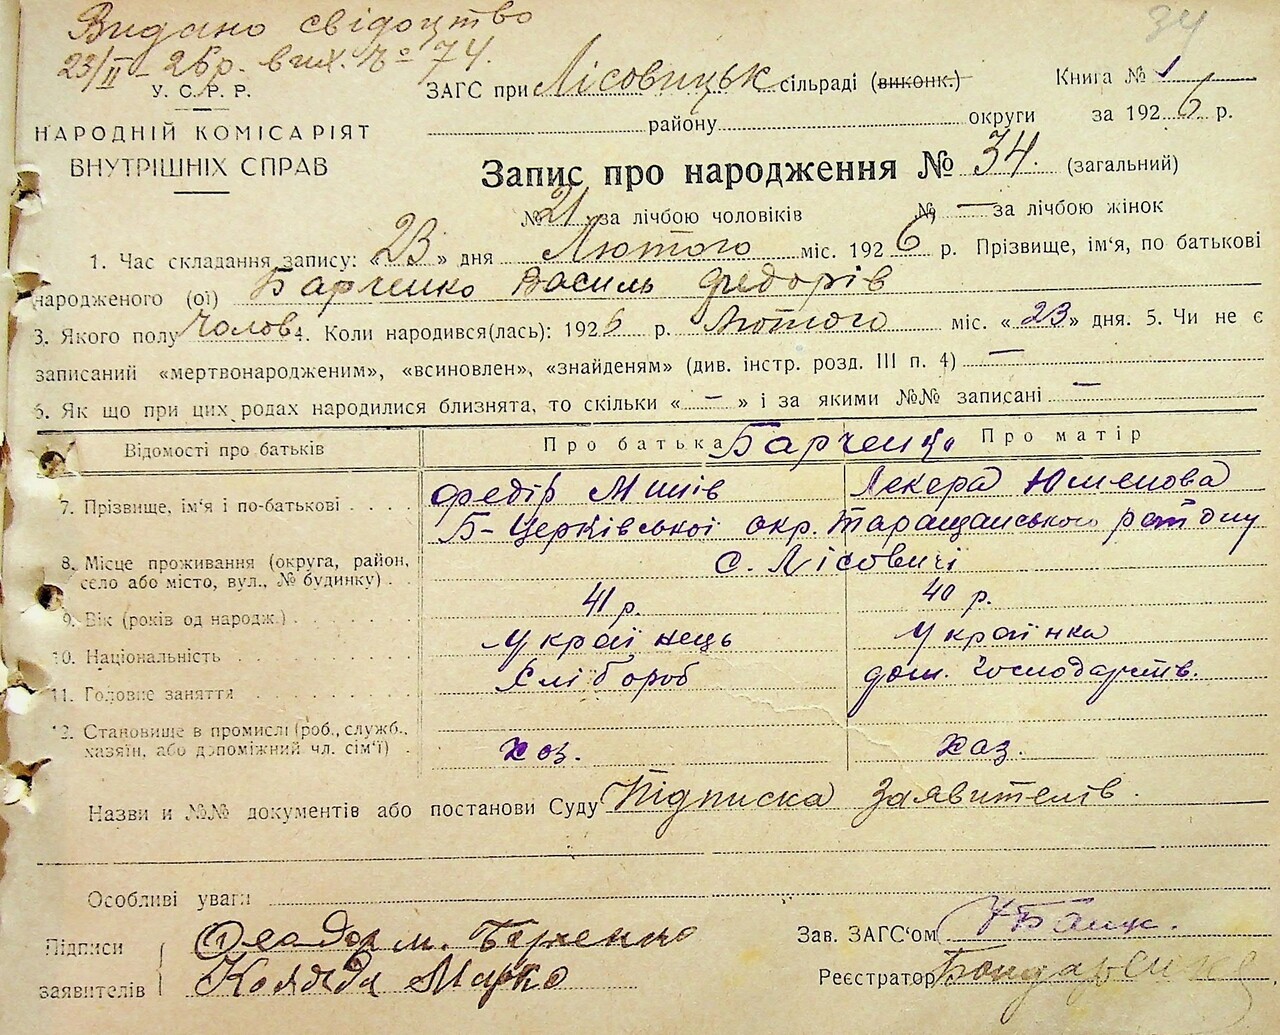 Видано свідоцтво
23/II - 26 р. вих. № 74.
34
У. С. Р. Р.
НАРОДНІЙ КОМІСАРІЯТ
ВНУТРІШНІХ СПРАВ
ЗАГС при Лісовицьк сільраді (виконк.) Книга № 1
району округи за 1926 р.
Запис про народження № 34. (загальний)
№ 21 за лічбою чоловіків № — за лічбою жінок
1. Час складання запису: «23» дня Лютого міс. 1926 р. Прізвище, ім'я, по батькові
народженого (ої) Барченко Василь Федорів
3. Якого полу Чолов. 4. Коли народився(лась): 1926 р. Лютого міс. «23» дня. 5. Чи не є
записаний «мертвонародженим», «всиновлен», «знайденям» (див. інстр. розд. III п. 4) —
6. Як що при цих родах народилися близнята, то скільки « — » і за якими №№ записані —
Відомості про батьків Про батька Барченко Про матір
7. Прізвище, ім'я і по-батькові Федір Місів Лекера Юменова
Б-Церківської окр. Таращанського району
8. Місце проживання (округа, район, с. Лісовичі
село або місто, вул., № будинку)
9. Вік (років од народж.) 41 р. 40 р.
10. Національність Українець Українка
11. Головне заняття Хлібороб дом. господарств.
12. Становище в промислі (роб., служб.,
хазяїн, або допоміжний чл. сім'ї) хаз. хаз.
Назви и №№ документів або постанови Суду Підписка заявителів.
Особливі уваги
Підписи Феодор М. Барченко Зав. ЗАГС'ом
заявителів Коляда Марко Реєстратор Бондаренко